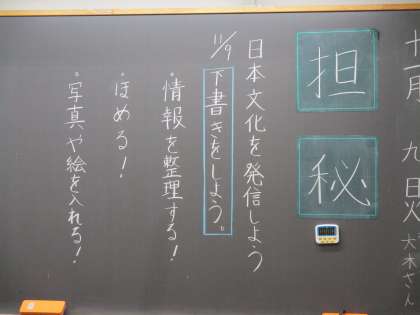 十一月九日
大木さん
担
秘
日本文化を発信しよう
11/9
下書きをしよう。
・情報を整理する！
・ほめる！
・写真や絵を入れる！